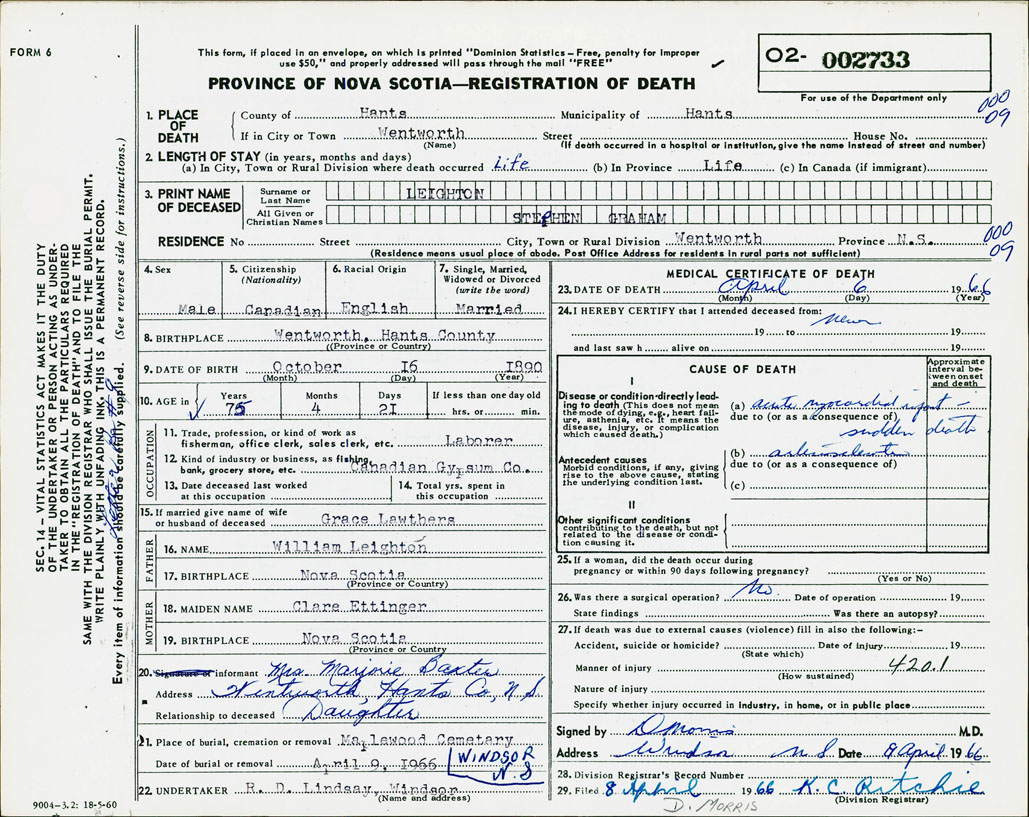 FORM 6
This form, if placed in an envelope, on which is printed "Dominion Statistics – Free, penalty for improper
use $50," and properly addressed will pass through the mail "FREE"
✓
PROVINCE OF NOVA SCOTIA—REGISTRATION OF DEATH
02- 002733
For use of the Department only
000
09
1. PLACE OF DEATH
County of Hants Municipality of Hants
If in City or Town Wentworth Street House No.
(Name) (If death occurred in a hospital or institution, give the name instead of street and number)
2. LENGTH OF STAY (in years, months and days)
(a) In City, Town or Rural Division where death occurred Life (b) In Province Life (c) In Canada (if immigrant)
3. PRINT NAME OF DECEASED
Surname or Last Name LEIGHTON
All Given or Christian Names STEPHEN GRAHAM
RESIDENCE No Street City, Town or Rural Division Wentworth Province N.S.
(Residence means usual place of abode. Post Office Address for residents in rural parts not sufficient)
000
09
4. Sex Male
5. Citizenship (Nationality) Canadian
6. Racial Origin English
7. Single, Married, Widowed or Divorced (write the word) Married
8. BIRTHPLACE Wentworth, Hants County
((Province or Country)
9. DATE OF BIRTH October 16 1890
(Month) (Day) (Year)
10. AGE in Years Months Days If less than one day old
✓ 75 4 21 hrs. or min.
OCCUPATION
11. Trade, profession, or kind of work as
fisherman, office clerk, sales clerk, etc. Laborer
12. Kind of industry or business, as fishing,
bank, grocery store, etc. Canadian Gypsum Co.
13. Date deceased last worked
at this occupation
14. Total yrs. spent in
this occupation
15. If married give name of wife
or husband of deceased Grace Lawthers
FATHER
16. NAME William Leighton
17. BIRTHPLACE Nova Scotia
(Province or Country)
MOTHER
18. MAIDEN NAME Clare Ettinger
19. BIRTHPLACE Nova Scotia
(Province or Country)
20. Signature of informant Mrs. Marjorie Baxter
Address Wentworth, Hants Co, N.S.
Relationship to deceased Daughter
21. Place of burial, cremation or removal Maplewood Cemetary
Date of burial or removal April 9, 1966
WINDSOR
N S
22. UNDERTAKER R. D. Lindsay, Windsor
(Name and address)
MEDICAL CERTIFICATE OF DEATH
23. DATE OF DEATH April 6 1966
(Month) (Day) (Year)
24. I HEREBY CERTIFY that I attended deceased from:
never
19 to 19
and last saw h alive on 19
CAUSE OF DEATH
Approximate interval between onset and death
I
Disease or condition directly leading to death (This does not mean
the mode of dying, e.g., heart failure, asthenia, etc. It means the
disease, injury, or complication
which caused death.)
(a) acute myocardial infarct –
due to (or as a consequence of)
sudden death
Antecedent causes
Morbid conditions, if any, giving
rise to the above cause, stating
the underlying condition last.
(b)
due to (or as a consequence of)
(c)
II
Other significant conditions
contributing to the death, but not
related to the disease or condition causing it.
25. If a woman, did the death occur during
pregnancy or within 90 days following pregnancy?
(Yes or No)
26. Was there a surgical operation? No Date of operation 19
State findings Was there an autopsy?
27. If death was due to external causes (violence) fill in also the following:–
Accident, suicide or homicide? Date of injury 19
(State which)
Manner of injury 420.1
(How sustained)
Nature of injury
Specify whether injury occurred in industry, in home, or in public place
Signed by D Morris M.D.
Address Windsor N S Date 8 April 1966
28. Division Registrar's Record Number
29. Filed 8 April 1966 K. C. Ritchie
(Division Registrar)
D. MORRIS
9004-3.2: 18-5-60
SEC. 14 – VITAL STATISTICS ACT MAKES IT THE DUTY
OF THE UNDERTAKER OR PERSON ACTING AS UNDER-
TAKER TO OBTAIN ALL THE PARTICULARS REQUIRED
IN THE "REGISTRATION OF DEATH" AND TO FILE THE
SAME WITH THE DIVISION REGISTRAR WHO SHALL ISSUE THE BURIAL PERMIT.
WRITE PLAINLY WITH UNFADING INK. THIS IS A PERMANENT RECORD.
Every item of information should be carefully supplied. (See reverse side for instructions.)